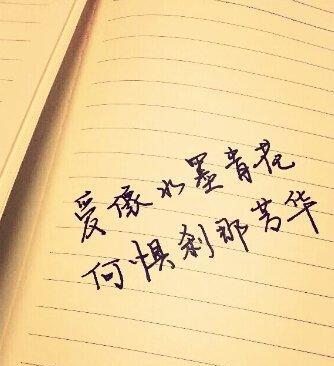 爱像水墨青花
何惧刹那芳华